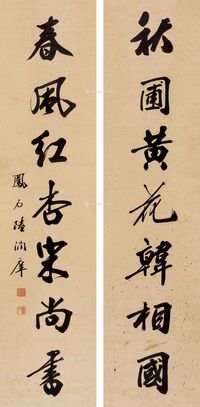 秋圃黄花韓相國
春風红杏宋尚書
鳳石陸潤庠